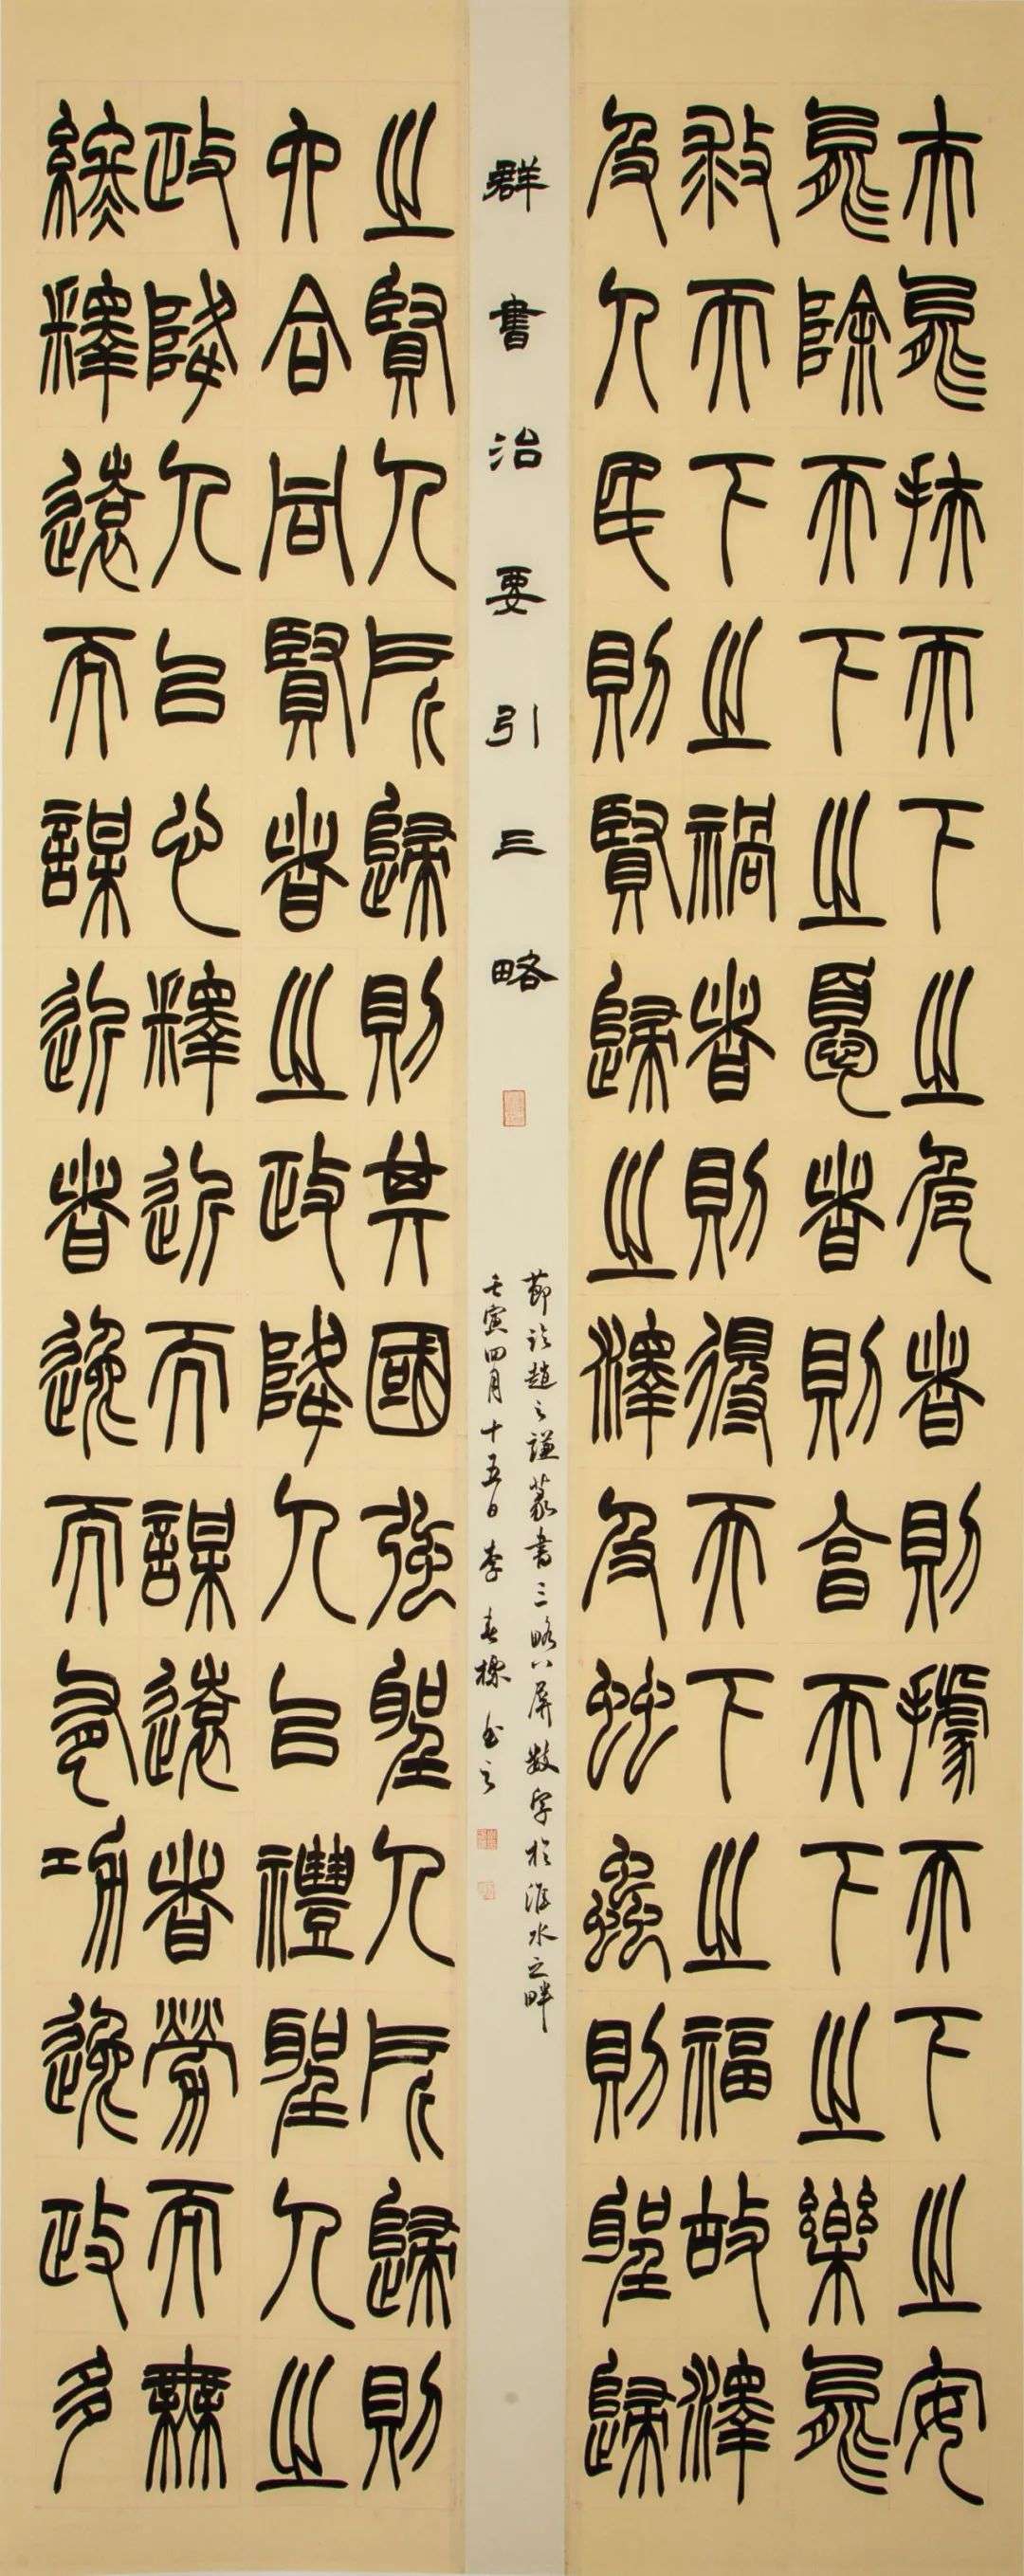 夫能扶天下之危者則據天下之安
能除天下之憂者則享天下之樂能
救天下之禍者則得天下之福故澤
及人民則賢歸之澤及䖵蟲則聖歸
之賢人所歸則其國強聖人所歸則
六合同賢者之政降人以禮聖人之
政降人以心釋近而謀遠者勞而無
釋遠而謀近者逸而有功逸政多
群書治要引三略
節臨趙之謙篆書三略八屏數字於淮水之畔
壬寅四月十五日李春標書之